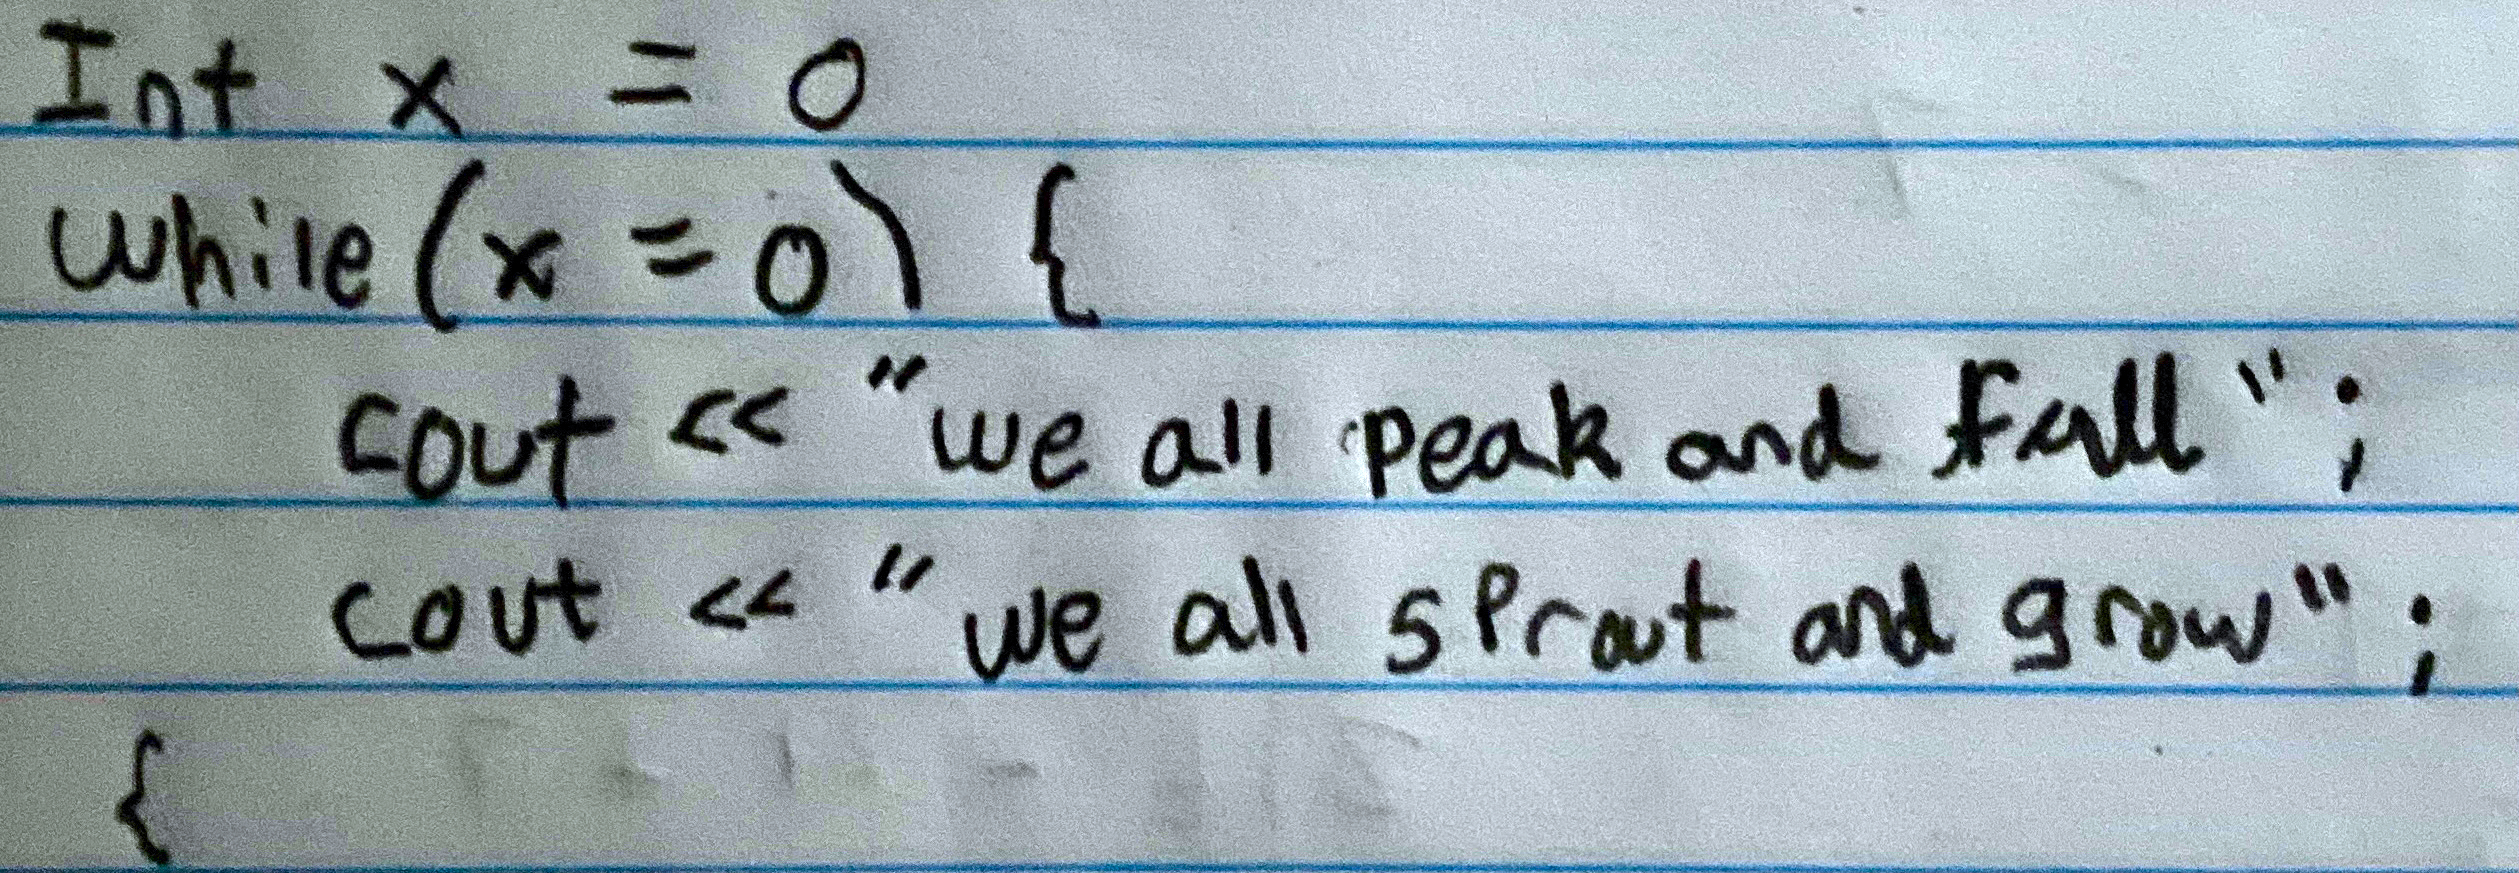 Int x = 0
while (x = 0) {
cout << "we all peak and fall";
cout << "we all sprout and grow";
{